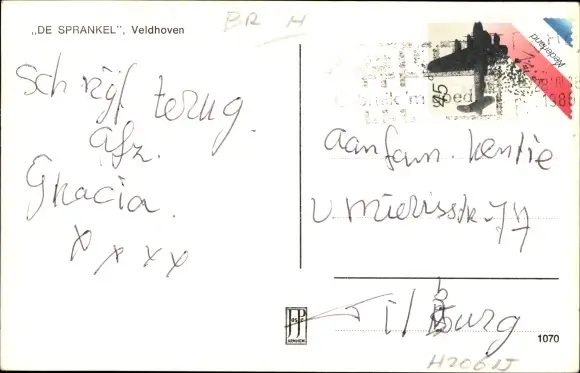 „DE SPRANKEL”, Veldhoven
BR H
Schrijf terug
afz.
Gracia.
x x x x
Nederland
45
1986
aan fam. Kentie
v. Mierisstr. 77
Tilburg
JP
ARNHEM
1070